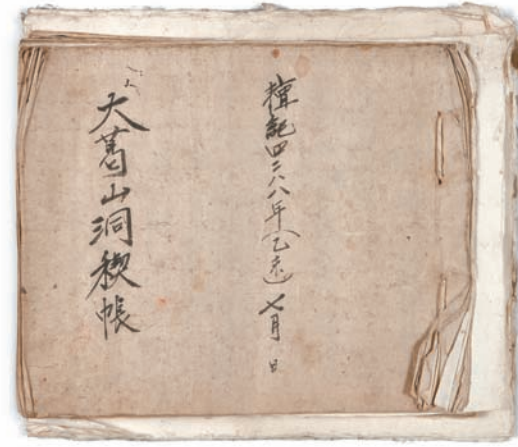 檀紀四二八八年(乙未)七月 日
大葛山洞稧帳